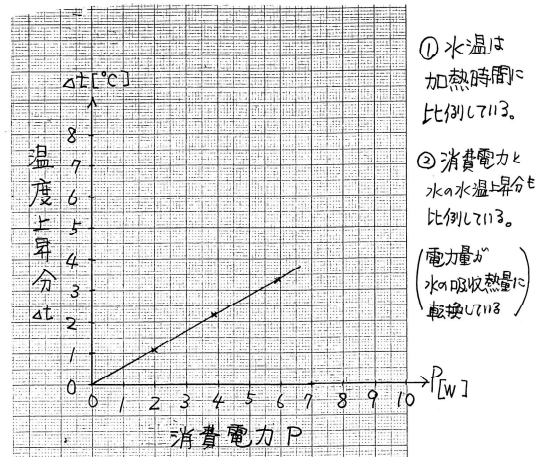 Δt[℃]
8
7
6
5
4
3
2
1
0
温度上昇分 Δt
0 1 2 3 4 5 6 7 8 9 10
P[W]
消費電力 P
① 水温は
加熱時間に
比例している。
② 消費電力と
水の水温上昇分も
比例している。
(電力量が
水の吸収熱量に
転換している)